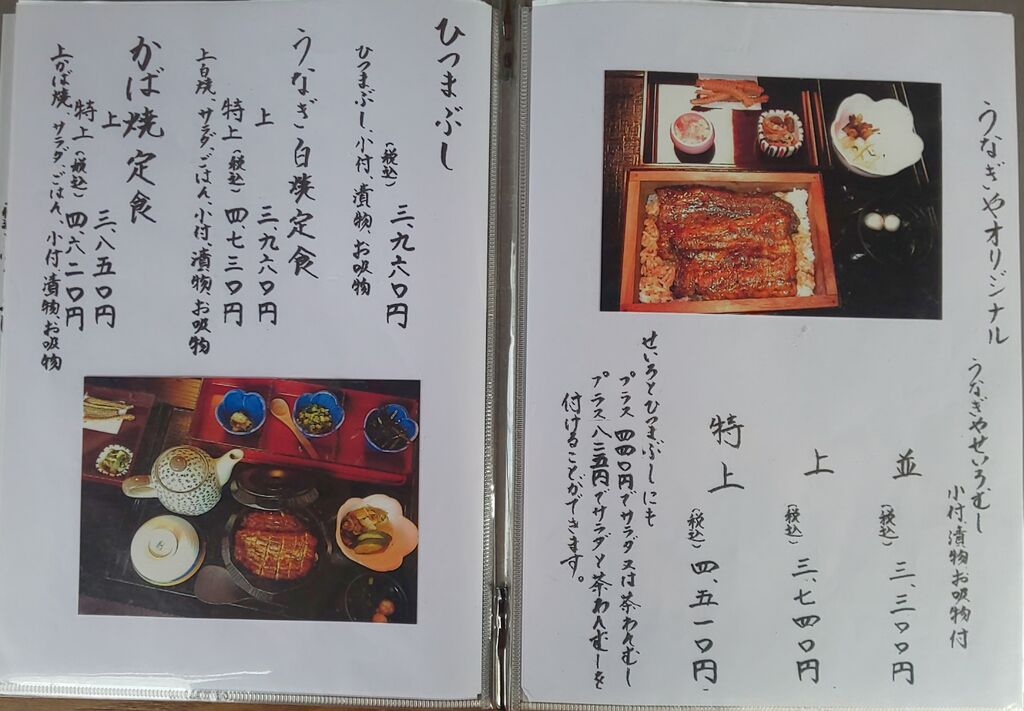 うなぎやオリジナル
うなぎやせいろむし
小付、漬物、お吸物付
並 (税込) 三、三〇〇円
上 (税込) 三、七四〇円
特上 (税込) 四、五一〇円
せいろとひつまぶしにも
プラス 四四〇円でサラダ又は茶わんむし
プラス 八二五円でサラダと茶わんむしを
付けることができます。
ひつまぶし
(税込) 三、九六〇円
ひつまぶし、小付、漬物、お吸物
うなぎ白焼定食
上 三、九六〇円
特上(税込) 四、七三〇円
上白焼、サラダ、ごはん、小付、漬物、お吸物
かば焼定食
上 三、八五〇円
特上(税込) 四、六二〇円
上かば焼、サラダ、ごはん、小付、漬物、お吸物